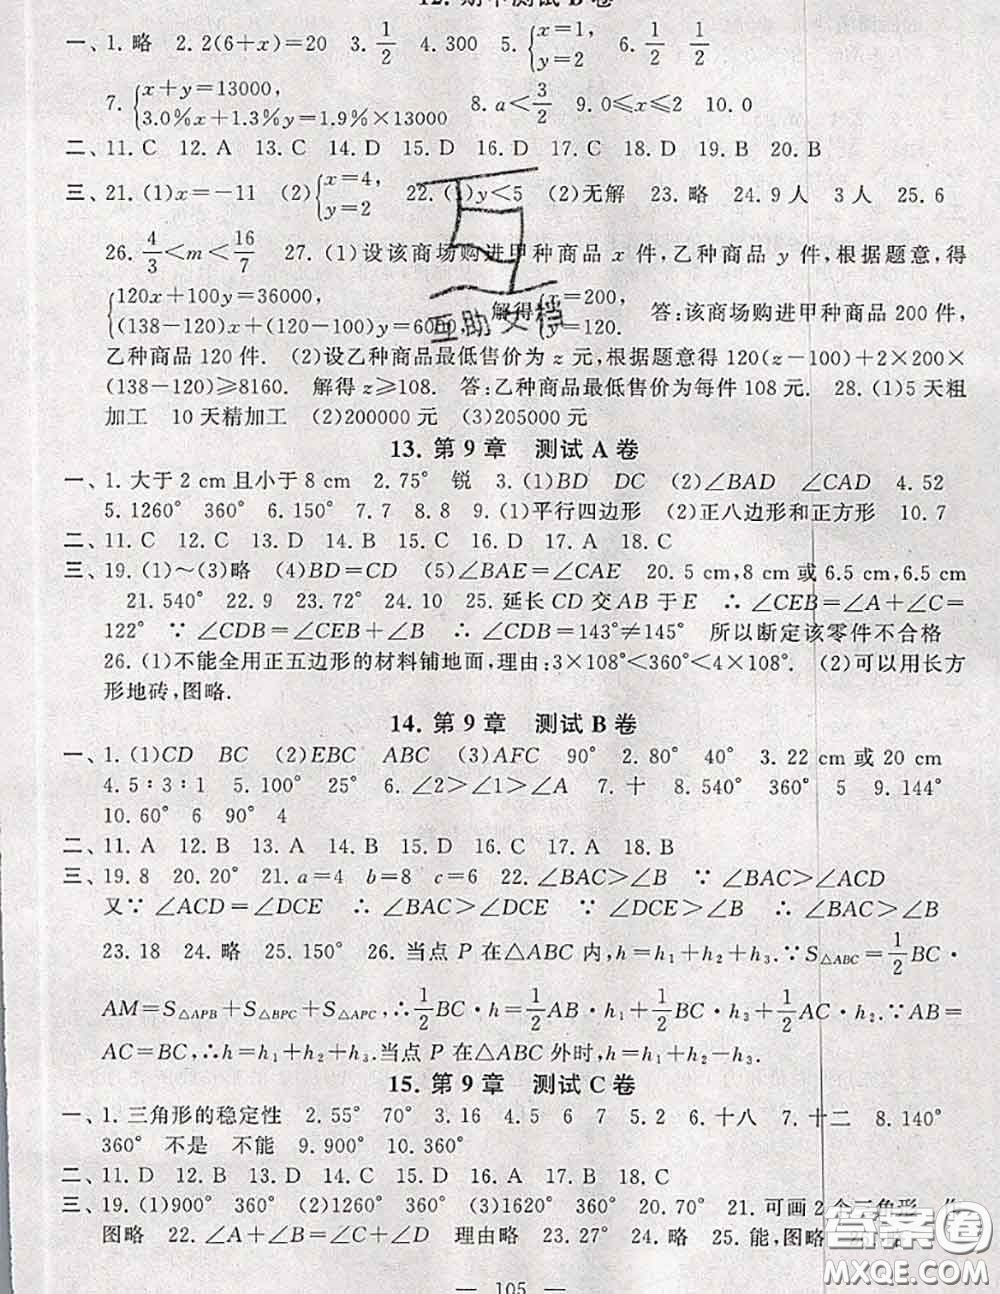 12. 期中测试 B 卷
一、1. 略 2. 2(6+x)=20 3. 1/2 4. 300 5. {x=1, y=2 6. 1/2 1/2
7. {x+y=13000, 3.0%x+1.3%y=1.9%×13000 8. a<3/2 9. 0≤x≤2 10. 0
二、11. C 12. A 13. C 14. D 15. D 16. D 17. C 18. D 19. B 20. B
三、21. (1)x=-11 (2){x=4, y=2 22. (1)y<5 (2)无解 23. 略 24. 9 人 3 人 25. 6
26. 4/3<m<16/7 27. (1)设该商场购进甲种商品 x 件,乙种商品 y 件,根据题意,得
{120x+100y=36000, (138-120)x+(120-100)y=6000. 解得{x=200, y=120. 答:该商场购进甲种商品 200 件,
乙种商品 120 件. (2)设乙种商品最低售价为 z 元,根据题意得 120(z-100)+2×200×
(138-120)≥8160. 解得 z≥108. 答:乙种商品最低售价为每件 108 元. 28. (1)5 天粗
加工 10 天精加工 (2)200000 元 (3)205000 元
互助文档
13. 第 9 章 测试 A 卷
一、1. 大于 2 cm 且小于 8 cm 2. 75° 锐 3. (1)BD DC (2)∠BAD ∠CAD 4. 52
5. 1260° 360° 6. 150° 7. 7 8. 8 9. (1)平行四边形 (2)正八边形和正方形 10. 7
二、11. C 12. C 13. C 14. D 15. D 16. D 17. A 18. C
三、19. (1)～(3)略 (4)BD=CD (5)∠BAE=∠CAE 20. 5 cm,8 cm 或 6.5 cm,6.5 cm
21. 540° 22. 9 23. 72° 24. 10 25. 延长 CD 交 AB 于 E ∴ ∠CEB=∠A+∠C=
122° ∵ ∠CDB=∠CEB+∠B ∴ ∠CDB=143°≠145° 所以断定该零件不合格
26. (1)不能全用正五边形的材料铺地面,理由:3×108°<360°<4×108°. (2)可以用长方
形地砖,图略.
14. 第 9 章 测试 B 卷
一、1. (1)CD BC (2)EBC ABC (3)AFC 90° 2. 80° 40° 3. 22 cm 或 20 cm
4. 5∶3∶1 5. 100° 25° 6. ∠2>∠1>∠A 7. 十 8. 540° 360° 5 9. 144°
10. 60° 6 90° 4
二、11. A 12. B 13. A 14. B 15. B 16. A 17. A 18. B
三、19. 8 20. 20° 21. a=4 b=8 c=6 22. ∠BAC>∠B ∵ ∠BAC>∠ACD
又∵ ∠ACD=∠DCE ∴ ∠BAC>∠DCE ∵ ∠DCE>∠B ∴ ∠BAC>∠B
23. 18 24. 略 25. 150° 26. 当点 P 在△ABC 内,h=h₁+h₂+h₃. ∵S△ABC=1/2BC·
AM=S△APB+S△BPC+S△APC,∴1/2BC·h=1/2AB·h₁+1/2BC·h₃+1/2AC·h₂. ∵AB=
AC=BC,∴h=h₁+h₂+h₃. 当点 P 在△ABC 外时,h=h₁+h₂-h₃.
15. 第 9 章 测试 C 卷
一、1. 三角形的稳定性 2. 55° 70° 3. 16 4. 5 6 5. 12 6. 十八 7. 十二 8. 140°
360° 不是 不能 9. 900° 10. 360°
二、11. D 12. D 13. B 14. D 15. D 16. A 17. B 18. C
三、19. (1)900° 360° (2)1260° 360° (3)1620° 360° 20. 70° 21. 可画 2 个三角形
图略 22. ∠A+∠B=∠C+∠D 理由略 23. 27° 24. 略 25. 能,图略
答案圈
MXQE.COM
— 105 —